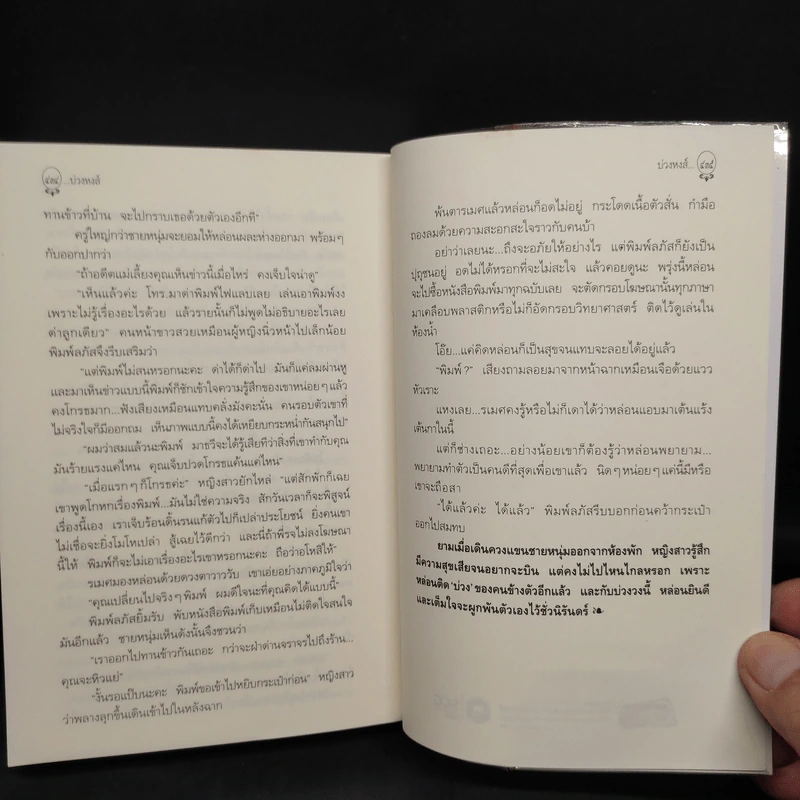 ๔๓๔...บ่วงหงส์
ทานข้าวที่บ้าน จะไปกราบเธอด้วยตัวเองอีกที”
ครู่ใหญ่กว่าชายหนุ่มจะยอมให้หล่อนผละห่างออกมา พร้อมๆ
กับออกปากว่า
“ถ้าอดีตแม่เลี้ยงคุณเห็นข่าวนี้เมื่อไหร่ คงเจ็บใจน่าดู”
“เห็นแล้วค่ะ โทร.มาด่าพิมพ์ไฟแลบเลย เล่นเอาพิมพ์งง
เพราะไม่รู้เรื่องอะไรด้วย แล้วรายนั้นก็ไม่พูดไม่อธิบายอะไรเลย
ด่าลูกเดียว” คนหน้าขาวสวยเหมือนผู้หญิงนิ่วหน้าไปเล็กน้อย
พิมพ์ลภัสจึงรีบเสริมว่า
“แต่พิมพ์ไม่สนหรอกนะคะ ด่าได้ก็ด่าไป มันก็แค่ลมผ่านหู
และมาเห็นข่าวแบบนี้พิมพ์ก็ชักเข้าใจความรู้สึกของเขาหน่อยๆ แล้ว
คงโกรธมาก...ฟังเสียงเหมือนแทบคลั่งมังคะนั่น คนรอบตัวเขาที่
ไม่จริงใจก็มีออกถม เห็นภาพแบบนี้คงได้เหยียบกระหน่ำกันสนุกไป”
“ผมว่าสมแล้วนะพิมพ์ มาธวีจะได้รู้เสียทีว่าสิ่งที่เขาทำกับคุณ
มันร้ายแรงแค่ไหน คุณเจ็บปวดโกรธแค้นแค่ไหน”
“เมื่อแรกๆ ก็โกรธค่ะ” หญิงสาวยักไหล่ “แต่สักพักก็เฉย
เขาพูดโกหกเรื่องพิมพ์...มันไม่ใช่ความจริง สักวันเวลาก็จะพิสูจน์
เรื่องนี้เอง เราเจ็บร้อนดิ้นรนแก้ตัวไปก็เปล่าประโยชน์ ยิ่งคนเขา
ไม่เชื่อจะยิ่งโมโหเปล่า สู้เฉยไว้ดีกว่า และนี่ถ้าพี่รจไม่ลงโฆษณา
นี้ให้ พิมพ์ก็จะไม่เอาเรื่องอะไรเขาหรอกนะคะ ถือว่าอโหสิให้”
รเมศมองหล่อนด้วยดวงตาวาววับ เขาเอ่ยอย่างภาคภูมิใจว่า
“คุณเปลี่ยนไปจริงๆ พิมพ์ ผมดีใจนะที่คุณคิดได้แบบนี้”
พิมพ์ลภัสยิ้มรับ พับหนังสือพิมพ์เก็บเหมือนไม่ติดใจสนใจ
มันอีกแล้ว ชายหนุ่มเห็นดังนั้นจึงชวนว่า
“เราออกไปทานข้าวกันเถอะ กว่าจะฝ่าด่านจราจรไปถึงร้าน...
คุณจะหิวแย่”
“งั้นรอแป๊บนะคะ พิมพ์ขอเข้าไปหยิบกระเป๋าก่อน” หญิงสาว
ว่าพลางลุกขึ้นเดินเข้าไปในหลังฉาก
บ่วงหงส์...๔๓๕
พ้นตารเมศแล้วหล่อนก็อดไม่อยู่ กระโดดเนื้อตัวสั่น กำมือ
ถองลมด้วยความสะอกสะใจราวกับคนบ้า
อย่าว่าเลยนะ...ถึงจะอภัยให้อย่างไร แต่พิมพ์ลภัสก็ยังเป็น
ปุถุชนอยู่ อดไม่ได้หรอกที่จะไม่สะใจ แล้วคอยดูนะ พรุ่งนี้หล่อน
จะไปซื้อหนังสือพิมพ์มาทุกฉบับเลย จะตัดกรอบโฆษณานั้นทุกภาษา
มาเคลือบพลาสติกหรือไม่ก็อัดกรอบวิทยาศาสตร์ ติดไว้ดูเล่นใน
ห้องน้ำ
โอ๊ย...แค่คิดหล่อนก็เป็นสุขจนแทบจะลอยได้อยู่แล้ว
“พิมพ์?” เสียงถามลอยมาจากหน้าฉากเหมือนเจือด้วยแวว
หัวเราะ
แหงเลย...รเมศคงรู้หรือไม่ก็เดาได้ว่าหล่อนแอบมาเต้นแร้ง
เต้นกาในนี้
แต่ก็ช่างเถอะ...อย่างน้อยเขาก็ต้องรู้ว่าหล่อนพยายาม...
พยายามทำตัวเป็นคนดีที่สุดเพื่อเขาแล้ว นิดๆ หน่อยๆ แค่นี้มีหรือ
เขาจะถือสา
“ได้แล้วค่ะ ได้แล้ว” พิมพ์ลภัสรีบบอกก่อนคว้ากระเป๋า
ออกไปสมทบ
ยามเมื่อเดินควงแขนชายหนุ่มออกจากห้องพัก หญิงสาวรู้สึก
มีความสุขเสียจนอยากจะบิน แต่คงไม่ไปไหนไกลหรอก เพราะ
หล่อนติด ‘บ่วง’ ของคนข้างตัวอีกแล้ว และกับบ่วงวงนี้ หล่อนยินดี
และเต็มใจจะผูกพันตัวเองไว้ชั่วนิรันดร์